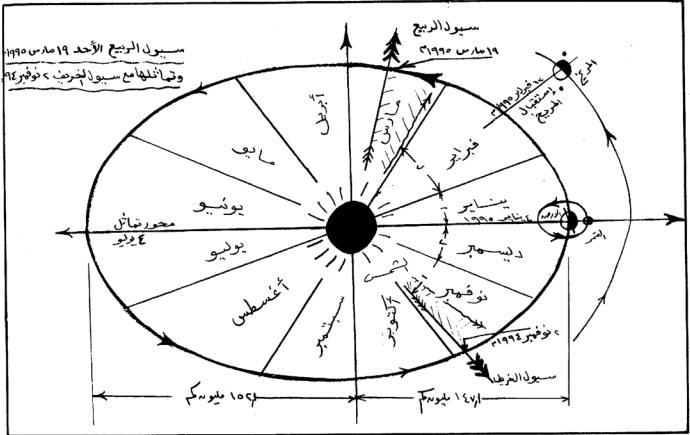 سيول الربيع الأحد ١٩ مارس ١٩٩٥م
وتماثلها مع سيول الخريف ٢ نوفمبر ٩٤
سيول الربيع
١٩ مارس ١٩٩٥م
المريخ
١٢ فبراير ١٩٩٥م
إستقبال
المريخ
أبريل
مارس
فبراير
مايو
يناير
٤ يناير ١٩٩٥م
الأرض
القمر
يونيو
محور تماثل
٤ يوليو
يوليو
ديسمبر
الشمس
نوفمبر
أغسطس
سبتمبر
أكتوبر
٢ نوفمبر ١٩٩٤م
سيول الخريف
١٥٢٫١ مليون كم
١٤٧٫١ مليون كم